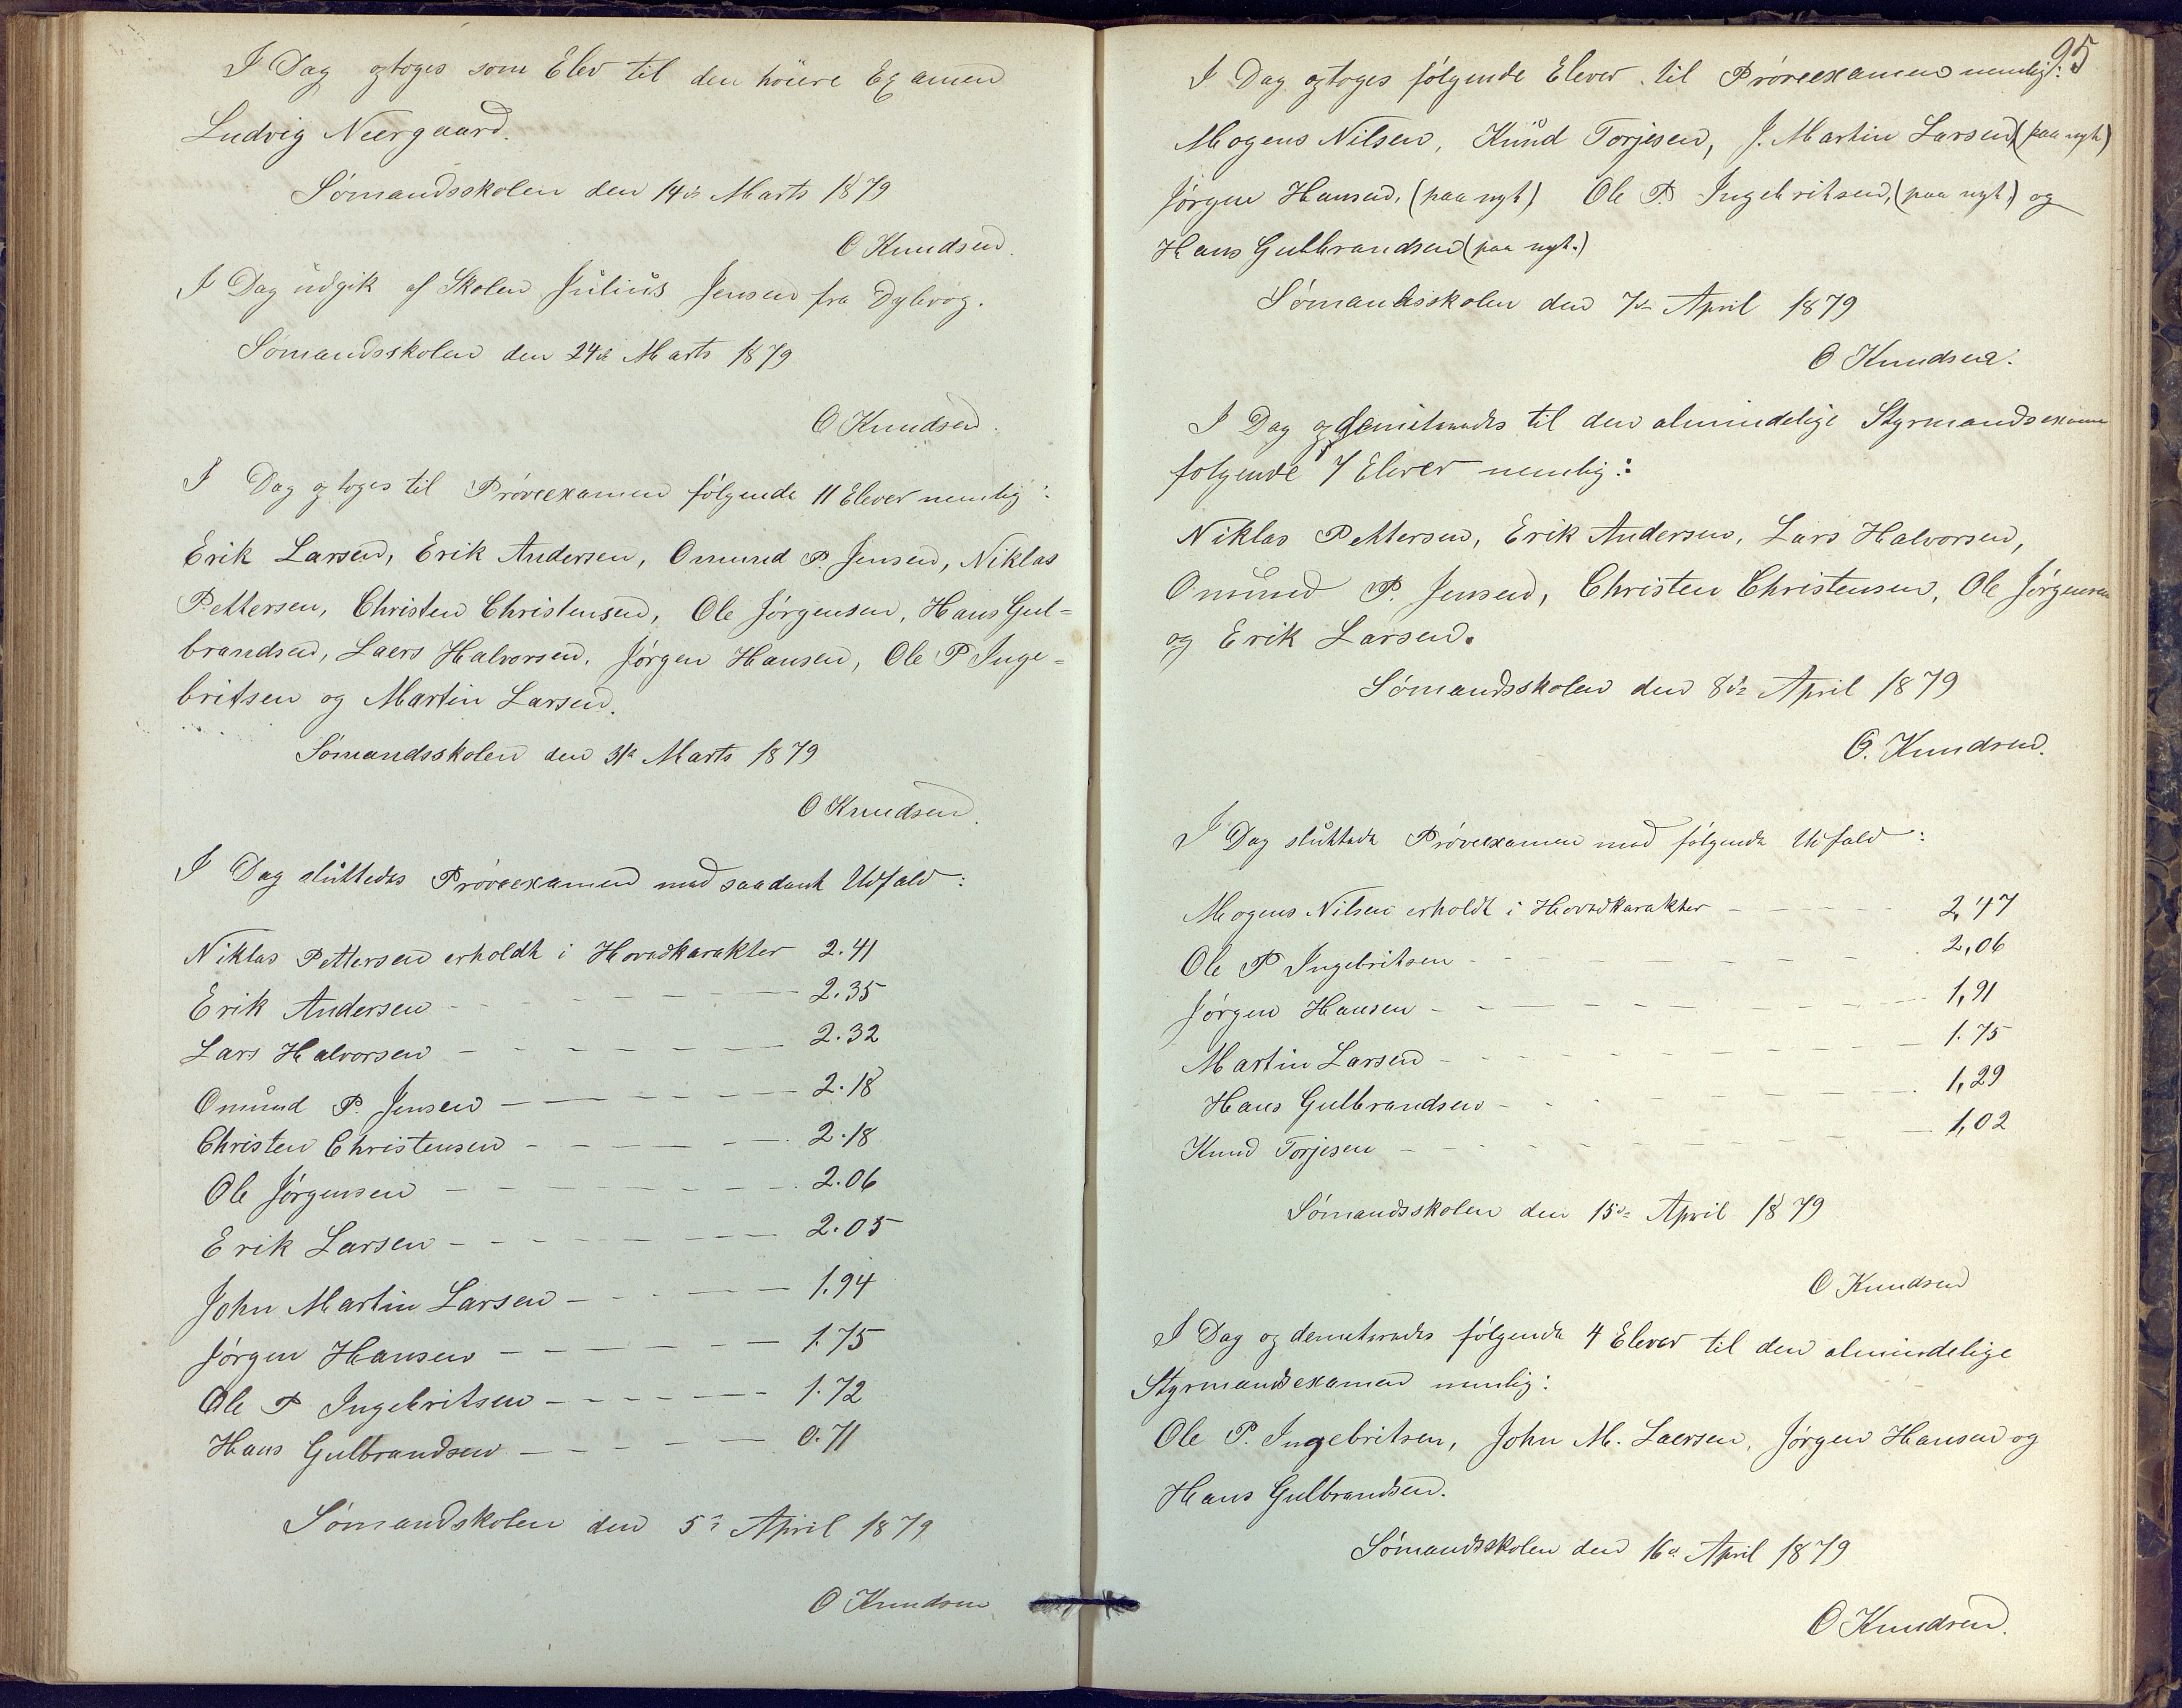 I Dag optoges som Elev til den höiere Examen
Ludvig Neergaard.
Sømandsskolen den 14de Marts 1879
O Knudsen.
I Dag udgik af Skolen Julius Jensen fra Dybvog.
Sømandsskolen den 24de Marts 1879
O Knudsen.
I Dag optoges til Prøveexamen følgende 11 Elever nemlig:
Erik Larsen, Erik Andersen, Omund P. Jensen, Niklas
Pettersen, Christen Christensen, Ole Jørgensen, Hans Gul=
brandsen, Laers Halvorsen, Jørgen Hansen, Ole P Inge=
britsen og Martin Larsen.
Sømandsskolen den 31te Marts 1879
O Knudsen.
I Dag sluttedes Prøveexamen med saadant Udfald:
Niklas Pettersen erholdt i Hovedkarakter 2.41
Erik Andersen - - - - - - 2.35
Lars Halvorsen - - - - - - 2.32
Omund P. Jensen - - - - - - 2.18
Christen Christensen - - - - - 2.18
Ole Jørgensen - - - - - - 2.06
Erik Larsen - - - - - - 2.05
John Martin Larsen - - - - - 1.94
Jørgen Hansen - - - - - - 1.75
Ole P Ingebritsen - - - - - 1.72
Hans Gulbrandsen - - - - - 0.71
Sømandskolen den 5te April 1879
O Knudsen
95
I Dag optoges følgende Elever til Prøveexamen nemlig:
Mogens Nilsen, Knud Torjesen, J. Martin Larsen, (paa nyt)
Jørgen Hansen, (paa nyt) Ole P. Ingebritsen, (paa nyt) og
Hans Gulbrandsen (paa nyt.)
Sømandsskolen den 7de April 1879
O Knudsen.
I Dag opdemiteredes til den almindelige Styrmandsexamen
følgende 7 Elever nemlig:
Niklas Pettersen, Erik Andersen, Lars Halvorsen,
Omund P. Jensen, Christen Christensen, Ole Jørgensen
og Erik Larsen.
Sømandsskolen den 8de April 1879
O. Knudsen.
I Dag sluttede Prøveexamen med følgende Udfald:
Mogens Nilsen erholdt i Hovedkarakter - - - - 2,47
Ole P Ingebritsen - - - - - - 2,06
Jørgen Hansen - - - - - - 1,91
Martin Larsen - - - - - - 1.75
Hans Gulbrandsen - - - - - - 1,29
Knud Torjesen - - - - - - 1,02
Sømandsskolen den 15de April 1879
O Knudsen
I Dag opdemiteredes følgende 4 Elever til den almindelige
Styrmandsexamen nemlig:
Ole P. Ingebritsen, John M. Laersen, Jørgen Hansen og
Hans Gulbrandsen.
Sømandsskolen den 16de April 1879
O Knudsen.